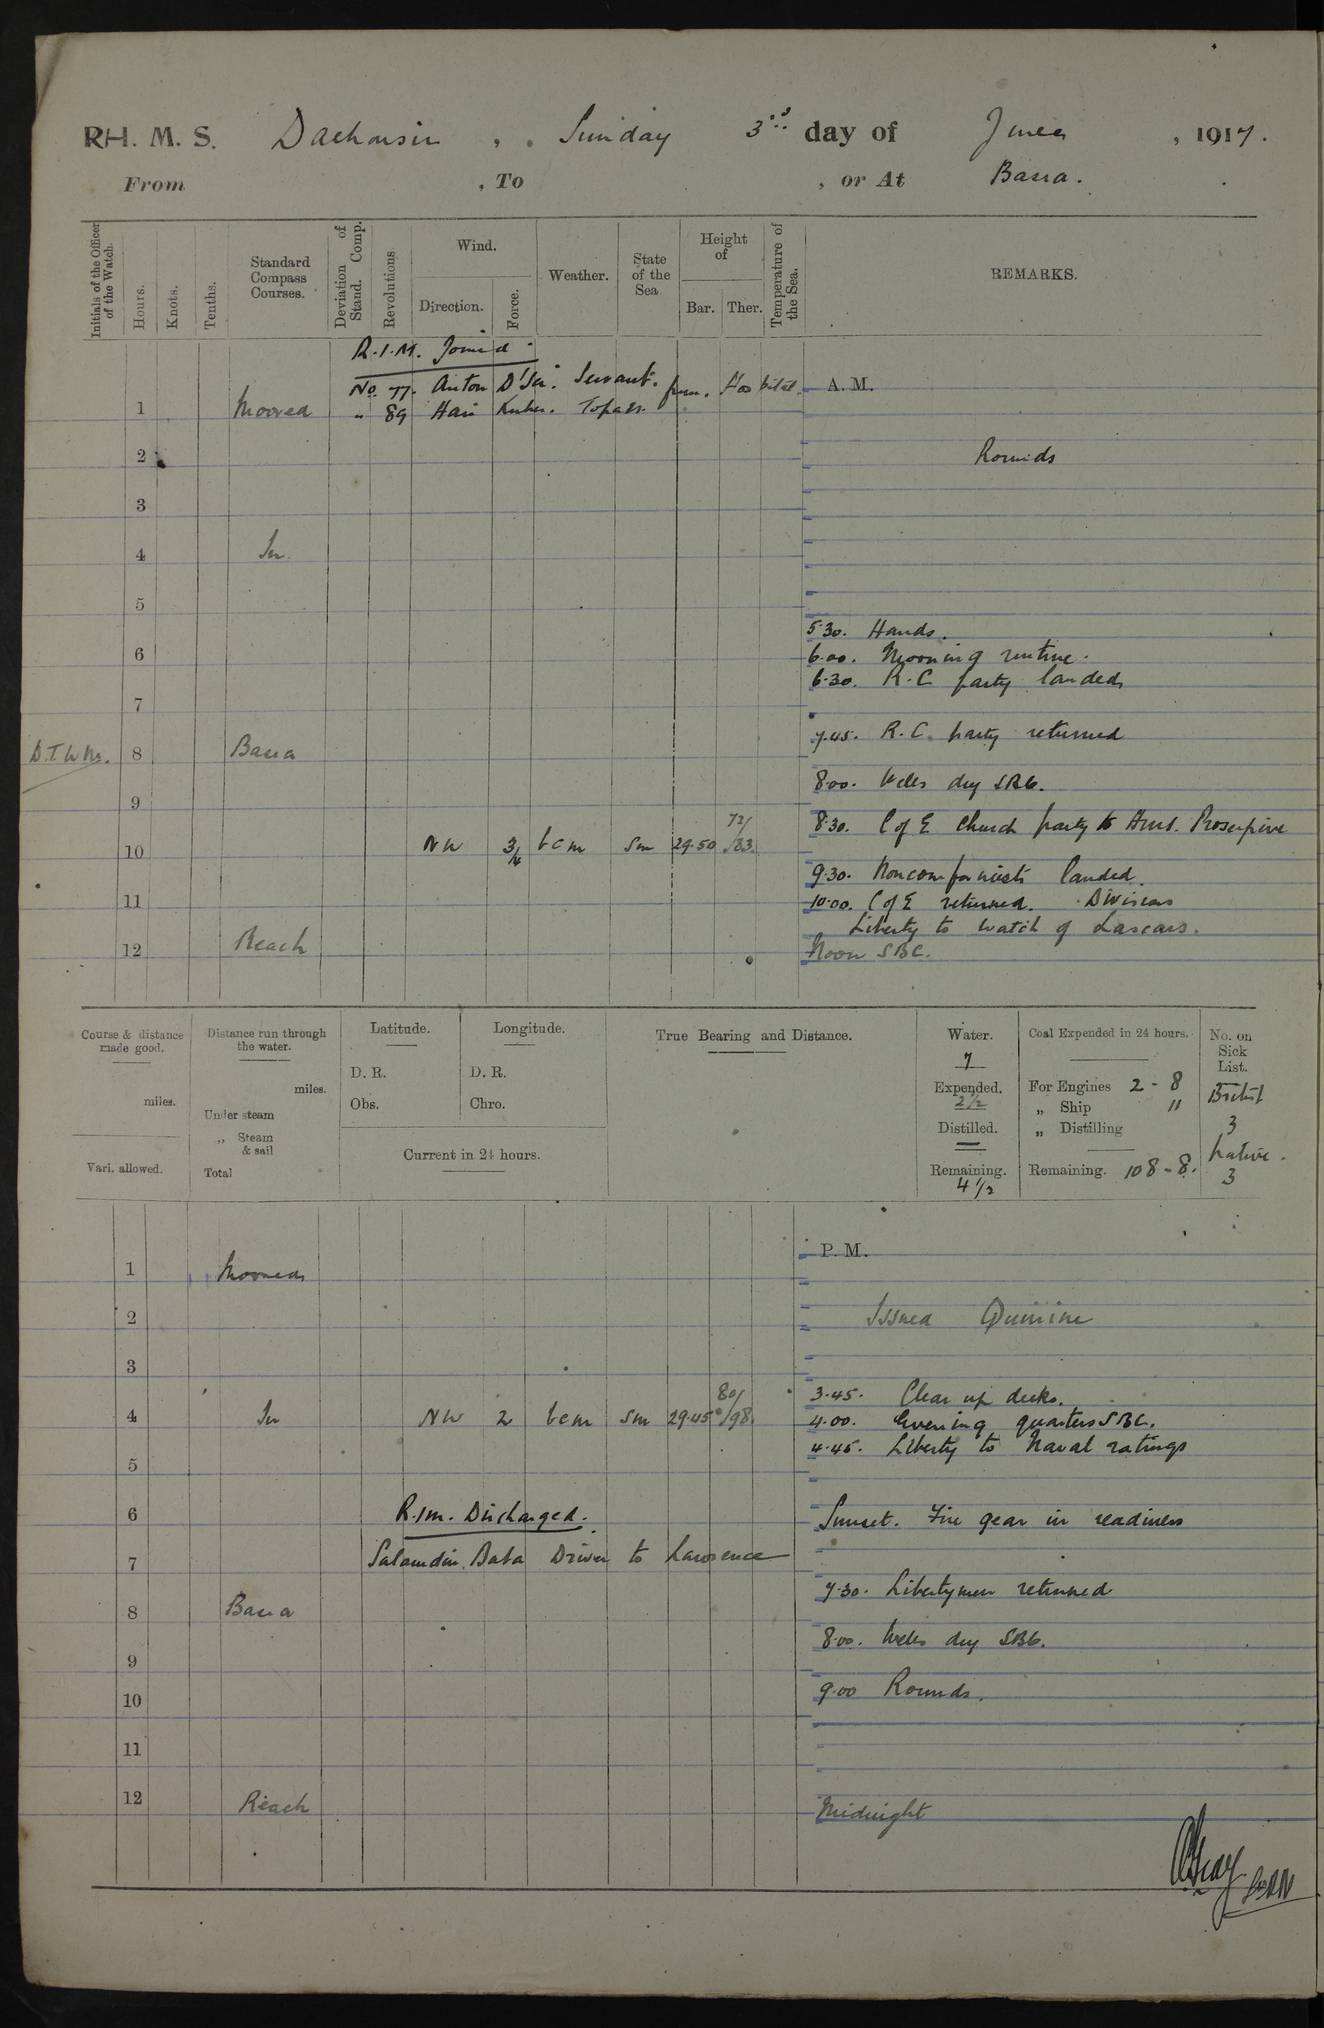 RH. M. S. Dalhousie, Sunday 3rd day of June, 1917.
From , To , or At Basra.
Initials of the Officer of the Watch.
Hours.
Knots.
Tenths.
Standard Compass Courses.
Deviation of Stand. Comp.
Revolutions
Wind.
Direction.
Force.
Weather.
State of the Sea
Height of
Bar.
Ther.
Temperature of the Sea.
REMARKS.
R.I.M. Joined.
No. 77. Anton D'Sa. Servant. from Hospital.
A. M.
1 Moored " 89 Hari Topass.
2 Rounds
3
4 In
5
5.30. Hands.
6 6.00. Morning routine.
6.30. R.C. party landed
7
7.45. R.C. party returned
D.T.W.M. 8 Basra
8.00. Wells dry SBC.
9
8.30. C of E Church party to HMS. Proserpine
10 NW 3/4 bcm Sm 29.50 72/83
9.30. Nonconformists landed.
11 10.00. C of E returned. Divisions
Liberty to watch of Lascars.
12 Reach Noon SBC.
Course & distance made good.
miles.
Vari. allowed.
Distance run through the water.
miles.
Under steam
„ Steam & sail
Total
Latitude.
D. R.
Obs.
Longitude.
D. R.
Chro.
Current in 24 hours.
True Bearing and Distance.
Water.
7
Expended.
2 1/2
Distilled.
—
Remaining.
4 1/2
Coal Expended in 24 hours.
For Engines 2 - 8
„ Ship "
„ Distilling
Remaining. 108 - 8.
No. on Sick List.
British
3
Native.
3
P. M.
1 Moored
2 Issued Quinine
3
3.45. Clear up decks.
4 In NW 2 bcm Sm 29.45 80/98
4.00. Evening quarters SBC.
4.45. Liberty to Naval ratings
5
6 R.I.M. Discharged. Sunset. Fire gear in readiness
7 Salamdin Baba Driver to Lawrence
7.30. Libertymen returned
8 Basra
8.00. Wells dry SBC.
9
9.00 Rounds.
10
11
12 Reach Midnight